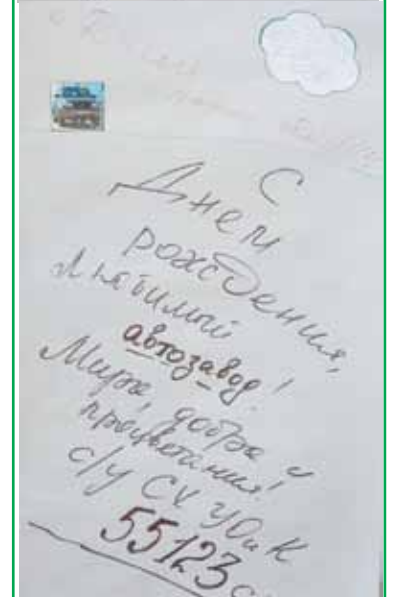 С
Днем
рождения,
Любимый
автозавод!
Мира, добра и
процветания!
с/у СК УОиК
55123